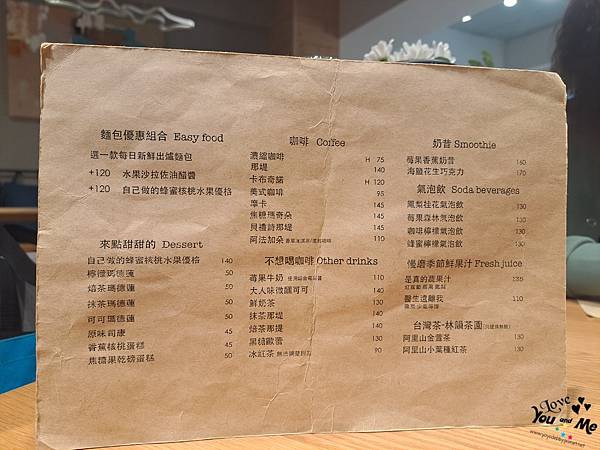 麵包優惠組合 Easy food
選一款每日新鮮出爐麵包
+120 水果沙拉佐油醋醬
+120 自己做的蜂蜜核桃水果優格
來點甜甜的 Dessert
自己做的蜂蜜核桃水果優格 140
檸檬瑪德蓮 50
焙茶瑪德蓮 50
抹茶瑪德蓮 50
可可瑪德蓮 50
原味司康 45
香蕉核桃蛋糕 45
焦糖果乾磅蛋糕 50
咖啡 Coffee
濃縮咖啡 H 75
那堤 140
卡布奇諾 H 120
美式咖啡 95
摩卡 145
焦糖瑪奇朵 145
貝禮詩那堤 145
阿法加朵 110
不想喝咖啡 Other drinks
莓果牛奶 110
大人味微醺可可 140
鮮奶茶 130
抹茶那堤 140
焙茶那堤 140
黑糖歐蕾 130
冰紅茶 90
奶昔 Smoothie
莓果香蕉奶昔 160
海鹽花生巧克力 170
氣泡飲 Soda beverages
鳳梨桂花氣泡飲 130
莓果森林氣泡飲 130
咖啡檸檬氣泡飲 130
蜂蜜檸檬氣泡飲 130
慢磨季節鮮果汁 Fresh juice
是真的蔬果汁 135
醫生遠離我 110
台灣茶-林韻茶園
阿里山金萱茶 130
阿里山小葉種紅茶 130
Love
You and Me